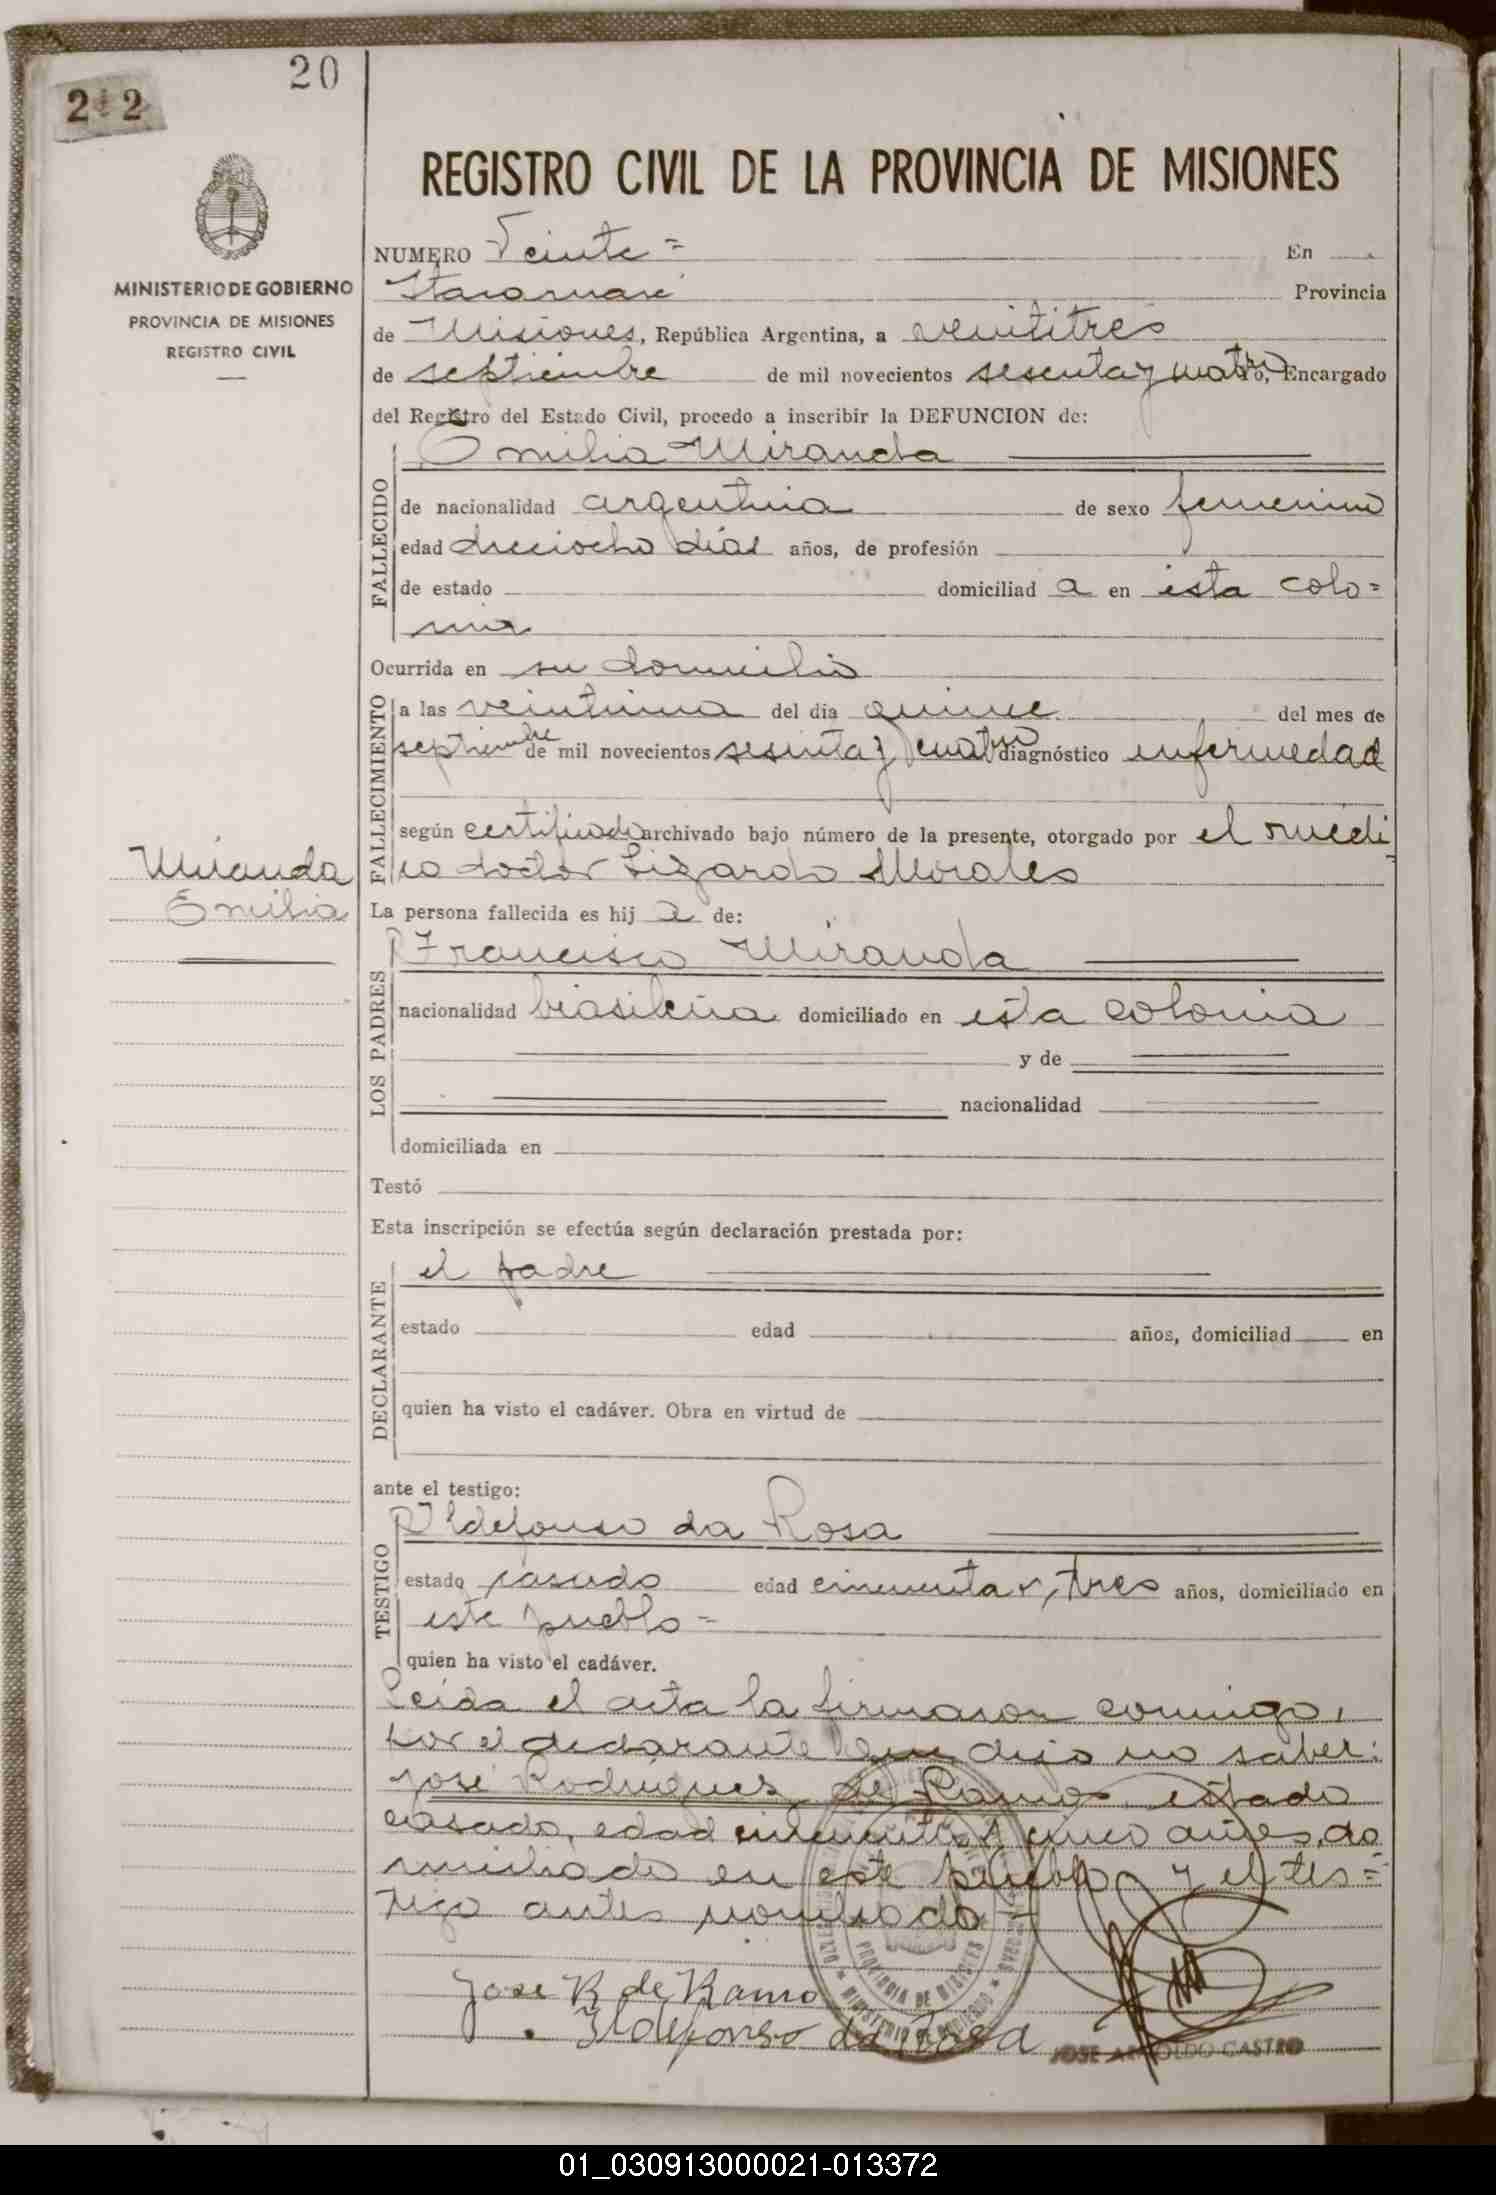 20
2 2
REGISTRO CIVIL DE LA PROVINCIA DE MISIONES
MINISTERIO DE GOBIERNO
PROVINCIA DE MISIONES
REGISTRO CIVIL
NUMERO Veinte = En
Itacaruaré Provincia
de Misiones, República Argentina, a veintitres
de septiembre de mil novecientos sesenta y cuatro, Encargado
del Registro del Estado Civil, procedo a inscribir la DEFUNCION de:
Emilia Miranda
FALLECIDO
de nacionalidad argentina de sexo femenino
edad dieciocho días años, de profesión
de estado domiciliad a en esta colo=
nia
Ocurrida en su domicilio
FALLECIMIENTO
a las veintiuna del dia quince del mes de
septiembre de mil novecientos sesenta y cuatro diagnóstico enfermedad
según certificado archivado bajo número de la presente, otorgado por el médi=
co doctor Lizardo Morales
Miranda
Emilia
La persona fallecida es hij a de:
Francisco Miranda
LOS PADRES
nacionalidad brasileña domiciliado en esta colonia
y de
nacionalidad
domiciliada en
Testó
Esta inscripción se efectúa según declaración prestada por:
el padre
DECLARANTE
estado edad años, domiciliad en
quien ha visto el cadáver. Obra en virtud de
ante el testigo:
Ildefonso da Rosa
TESTIGO
estado casado edad cincuenta y tres años, domiciliado en
este pueblo =
quien ha visto el cadáver.
Leída el acta la firmaron conmigo,
por el declarante que dijo no saber:
José Rodrigues de Ramos estado
casado, edad cincuenta y cinco años, do
miciliado en este pueblo y el tes=
tigo antes nombrado
PROVINCIA DE MISIONES
MINISTERIO DE GOBIERNO
Jose R de Ramo
Ildefonso da Rosa
JOSE ARNOLDO CASTRO
01_030913000021-013372